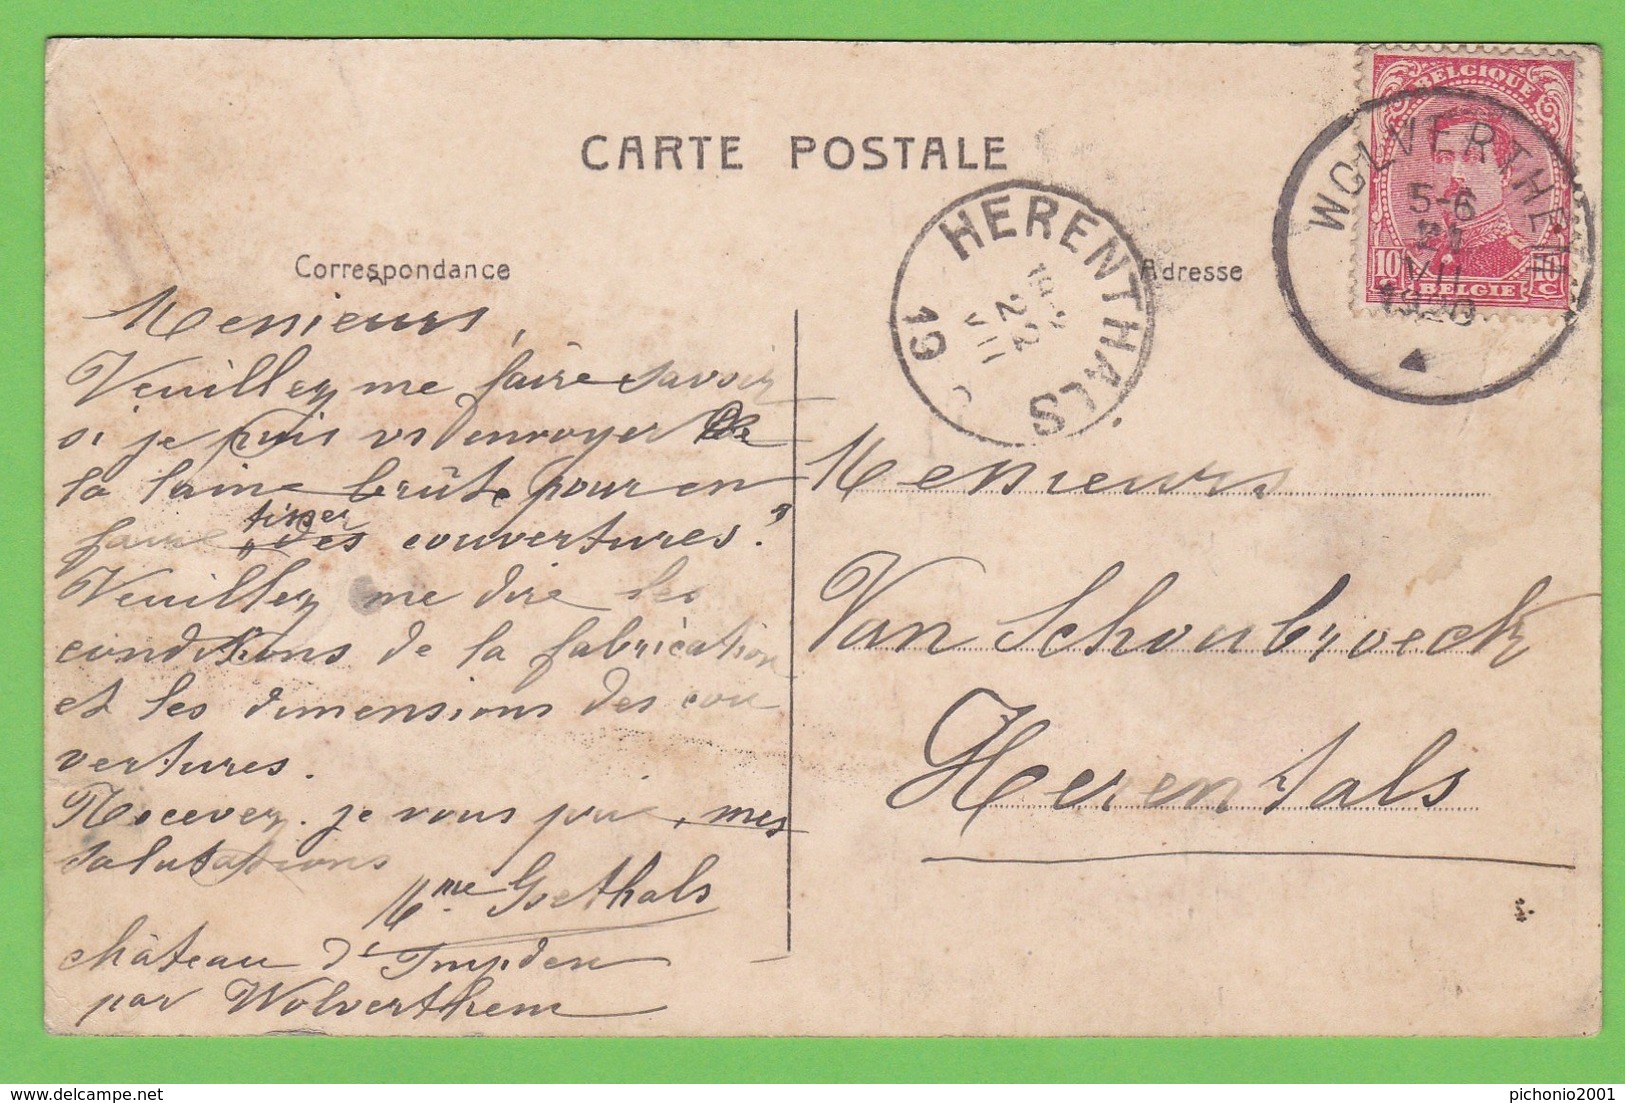 CARTE POSTALE
Correspondance
Messieurs,
Veuillez me faire savoir
si je puis vs envoyer de
la laine brûte pour en
faire tisser des couvertures?
Veuillez me dire les
conditions de la fabrication
et les dimensions des cou
vertures.
Recevez. je vous prie, mes
salutations
Mme Goethals
château d'Impden
par Wolverthem
Adresse
Messieurs
Van Schoubroeck
Herentals
HERENTHALS
22
VII
19
BELGIQUE
10 10
C
BELGIE
WOLVERTHEM
5-6
21
VII
1920
pichonio2001